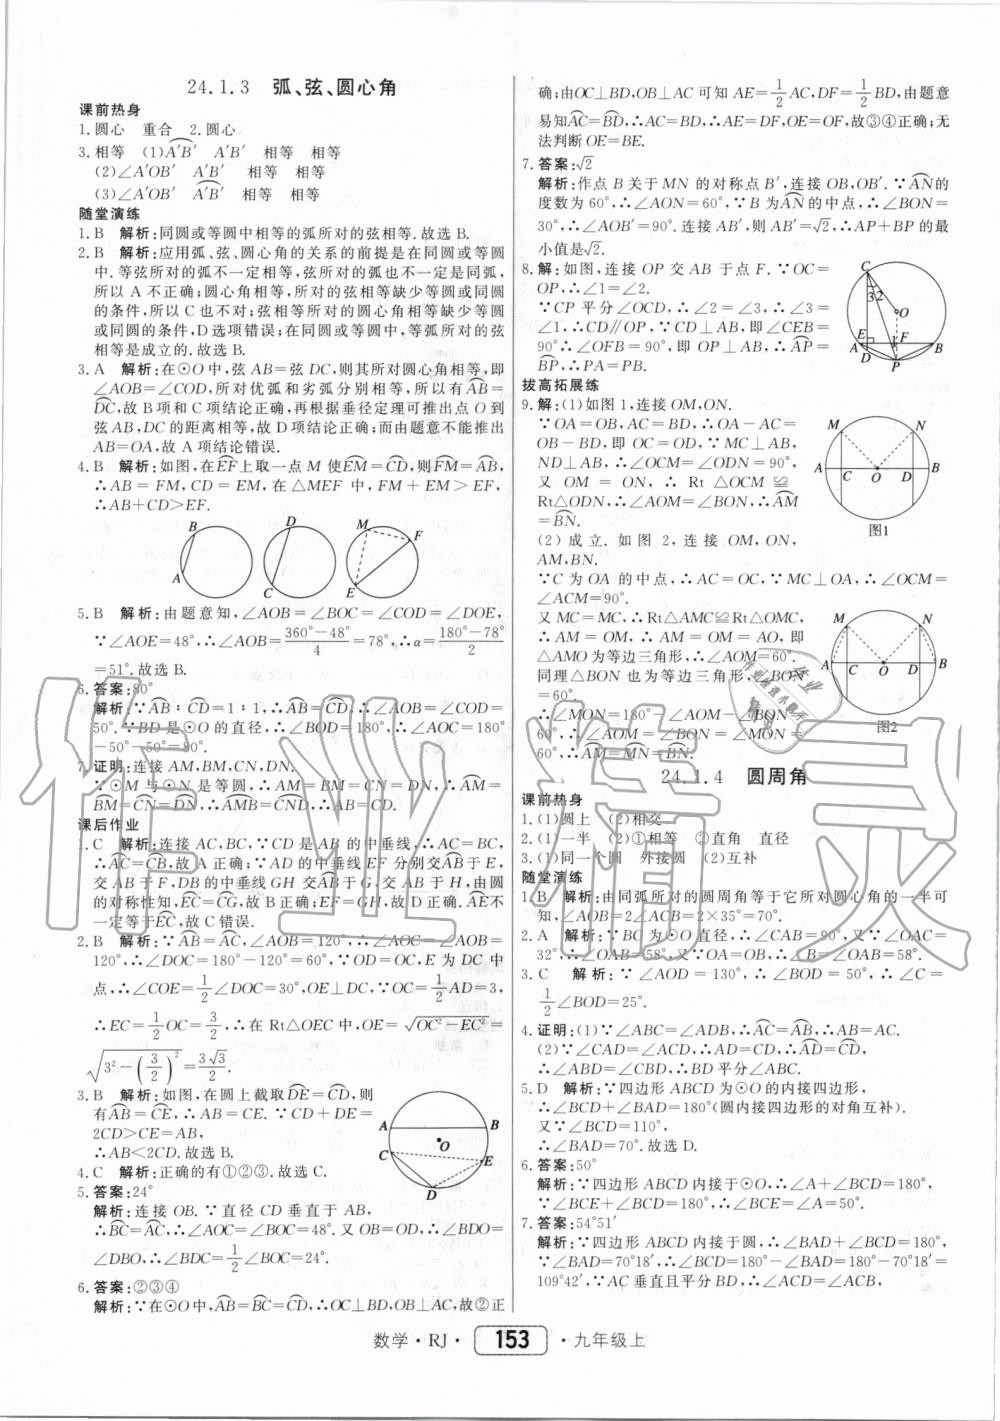 24.1.3　弧、弦、圆心角
课前热身
1.圆心　重合　2.圆心
3.相等　(1)A′B′　A′B′　相等　相等
(2)∠A′OB′　A′B′　相等　相等
(3)∠A′OB′　A′B′　相等　相等
随堂演练
1. B　解析:同圆或等圆中相等的弧所对的弦相等.故选 B.
2. B　解析:应用弧、弦、圆心角的关系的前提是在同圆或等圆
中.等弦所对的弧不一定相等,等弦所对的弧不一定是同弧,
所以 A 不正确;圆心角相等,所对的弦相等缺少等圆或同圆
的条件,所以 C 也不对;等弦相等所对的圆心角相等缺少等圆
或同圆的条件,D 选项错误;在同圆或等圆中,等弧所对的弦
相等是成立的.故选 B.
3. A　解析:在⊙O 中,弦 AB=弦 DC,则其所对圆心角相等,即
∠AOB=∠COD,所对优弧和劣弧分别相等,所以有AB=
DC,故 B 项和 C 项结论正确,再根据垂径定理可推出点 O 到
弦 AB,DC 的距离相等,故 D 项结论正确;而由题意不能推出
AB=OA,故 A 项结论错误.
4. B　解析:如图,在EF上取一点 M 使EM=CD,则FM=AB,
∴AB=FM,CD=EM,在△MEF 中,FM+EM>EF,
∴AB+CD>EF.
B
A
D
C
M
F
E
5. B　解析:由题意知,∠AOB=∠BOC=∠COD=∠DOE,
∵∠AOE=48°,∴∠AOB=(360°-48°)/4=78°,∴α=(180°-78°)/2
=51°.故选 B.
6.答案:80°
解析:∵AB∶CD=1∶1,∴AB=CD.∴∠AOB=∠COD=
50°.∵BD是⊙O 的直径,∴∠BOD=180°,∴∠AOC=180°
-50°-50°=80°.
7.证明:连接 AM,BM,CN,DN.
∵⊙M 与⊙N 是等圆,AB=CD,∴AM=
BM=CN=DN,∴
课后作业
1. C　解析:连接 AC,BC,∵CD 是AB 的中垂线,∴AC=BC,
∴AC=CB,故 A 正确;∵AD 的中垂线 EF 分别交AB于 E,
交 AB 于 F,DB 的中垂线 GH 交AB于 G,交 AB 于 H,由圆
的对称性知,EC=CG,故 B 正确;EF=GH,故 D 正确.AE不
一定等于EC,故 C 错误.
2. B　解析:∵AB=AC,∠AOB=120°,∴∠AOC=∠AOB=
120°,∴∠DOC=180°-120°=60°,∵OD=OC,E 为 DC 中
点,∴∠COE=1/2∠DOC=30°,OE⊥DC,∵OC=1/2AD=3,
∴EC=1/2OC=3/2,∴在 Rt△OEC 中,OE=√(OC²-EC²)=
√(3²-(3/2)²)=3√3/2.
3. B　解析:如图,在圆上截取DE=CD,则
有AB=CE,∴AB=CE.∵CD+DE=
2CD>CE=AB,
∴AB<2CD.故选 B.
A
B
O
C
E
D
4. C　解析:正确的有①②③.故选 C.
5.答案:24°
解析:连接 OB.∵直径 CD 垂直于 AB,
∴BC=AC,∴∠AOC=∠BOC=48°.又 OB=OD,∴∠BDO=
∠DBO,∴∠BDC=1/2∠BOC=24°.
6.答案:②③④
解析:∵在⊙O中,AB=BC=CD,∴OC⊥BD,OB⊥AC,故②正
确;由OC⊥BD,OB⊥AC 可知 AE=1/2AC,DF=1/2BD,由题意
易知AC=BD,∴AC=BD,∴AE=DF,OE=OF,故③④正确;无
法判断OE=BE.
7.答案:√2
解析:作点 B 关于 MN 的对称点 B′,连接 OB,OB′.∵AN的
度数为60°,∴∠AON=60°,∵B 为AN的中点,∴∠BON=
30°,∴∠AOB′=90°.连接 AB′,则 AB′=√2,∴AP+BP的最
小值是√2.
8.解:如图,连接 OP 交 AB 于点 F.∵OC=
OP,∴∠1=∠2.
∵CP 平分∠OCD,∴∠2=∠3,∴∠3=
∠1,∴CD∥OP,∵CD⊥AB,即∠CEB=
90°,∴∠OFB=90°,即 OP⊥AB,∴AP=
BP,∴PA=PB.
C
3
2
O
E
1
F
A
B
D
P
拔高拓展练
9.解:(1)如图 1,连接 OM,ON.
∵OA=OB,AC=BD,∴OA-AC=
OB-BD,即 OC=OD,∵MC⊥AB,
ND⊥AB,∴∠OCM=∠ODN=90°,
又 OM=ON,∴Rt△OCM≌
Rt△ODN,∴∠AOM=∠BON,∴AM
=BN.
M
N
A
C
O
D
B
图1
(2)成立.如图 2,连接 OM,ON,
AM,BN.
∵C 为 OA 的中点,∴AC=OC,∵MC⊥OA,∴∠OCM=
∠ACM=90°.
又 MC=MC,∴Rt△AMC≌Rt△OMC,
∴AM=OM,∴AM=OM=AO,即
△AMO为等边三角形,∴∠AOM=60°.
同理△BON 也为等边三角形,∠BON=
60°.
∴∠MON=180°-∠AOM-∠BON=
60°,∴∠AOM=∠BON=∠MON=
60°,∴AM=MN=BN.
M
N
A
C
O
D
B
图2
24.1.4　圆周角
课前热身
1.(1)圆上　(2)相交
2.(1)一半　(2)①相等　②直角　直径
3.(1)同一个圆　外接圆　(2)互补
随堂演练
1. B　解析:由同弧所对的圆周角等于它所对圆心角的一半可
知,∠AOB=2∠ACB=2×35°=70°.
2. A　解析:∵BC为⊙O 直径,∴∠CAB=90°,又∵∠OAC=
32°,∴∠OAB=58°,又∵OA=OB,∴∠B=∠OAB=58°.
3. C　解析:∵∠AOD=130°,∴∠BOD=50°,∴∠C=
1/2∠BOD=25°.
4.证明:(1)∵∠ABC=∠ADB,∴AC=AB,∴AB=AC.
(2)∵∠CAD=∠ACD,∴AD=CD,∴AD=CD,
∴∠ABD=∠CBD,∴BD平分∠ABC.
5. D　解析:∵四边形 ABCD 为⊙O的内接四边形,
∴∠BCD+∠BAD=180°(圆内接四边形的对角互补).
又∵∠BCD=110°,
∴∠BAD=70°.故选 D.
6.答案:50°
解析:∵四边形 ABCD 内接于⊙O,∴∠A+∠BCD=180°,
∵∠BCE+∠BCD=180°,∴∠BCE=∠A=50°.
7.答案:54°51′
解析:∵四边形 ABCD 内接于圆,∴∠BAD+∠BCD=180°,
∵∠BAD=70°18′,∴∠BCD=180°-∠BAD=180°-70°18′=
109°42′,∵AC 垂直且平分 BD,∴∠ACD=∠ACB,
数学·RJ·　153　·九年级上
作业精灵